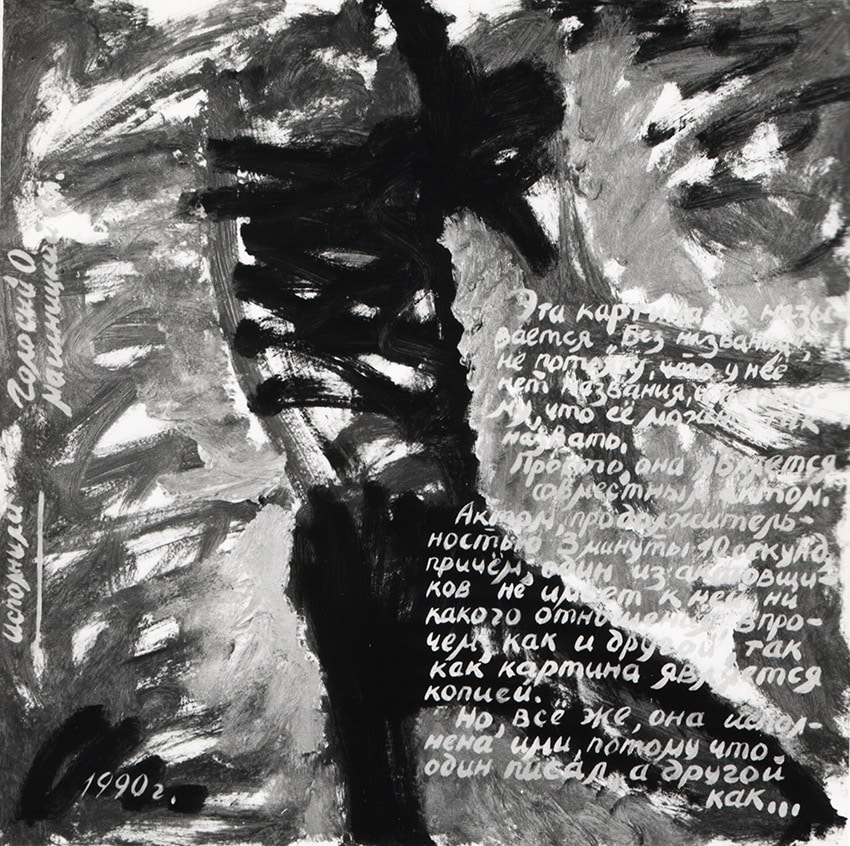 исполнили
Голосий О
Эта картина не назы-
вается „Без названия",
не потому, что у неё
нет названия,
му, что её
назвать.
Просто, она является
совместным актом.
Актом, продолжитель-
ностью 3 минуты 10 секунд,
причём, один из актовщи-
ков не имеет к ней ни
какого отношения, впро-
чем, как и другой, так
как картина является
копией.
Но, всё же, она испол-
нена ими, потому что
один писал, а другой
как...
1990г.